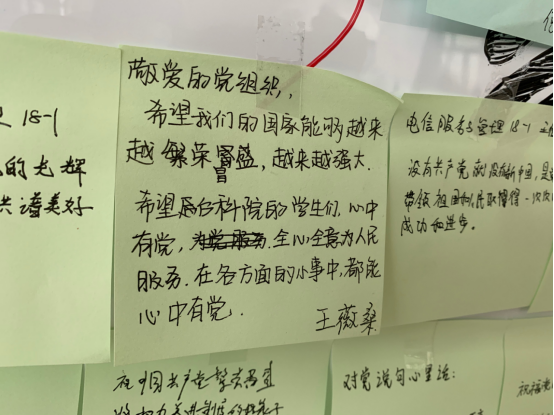 敬爱的党组织，
希望我们的国家能够越来
越繁荣冒盛，越来越强大.
希望 学院的学生们，心中
有党，为党服务.全心全意为人民
服务.在各方面的小事中，都能
心中有党.
王薇桑
18-1
的光辉
共谱美好
电信服务与管理18-1
没有共产党就没有新中国，是
带领祖国和人民取得一次次
成功和进步。
祝中国共产党
对党说句心里话：
祝福